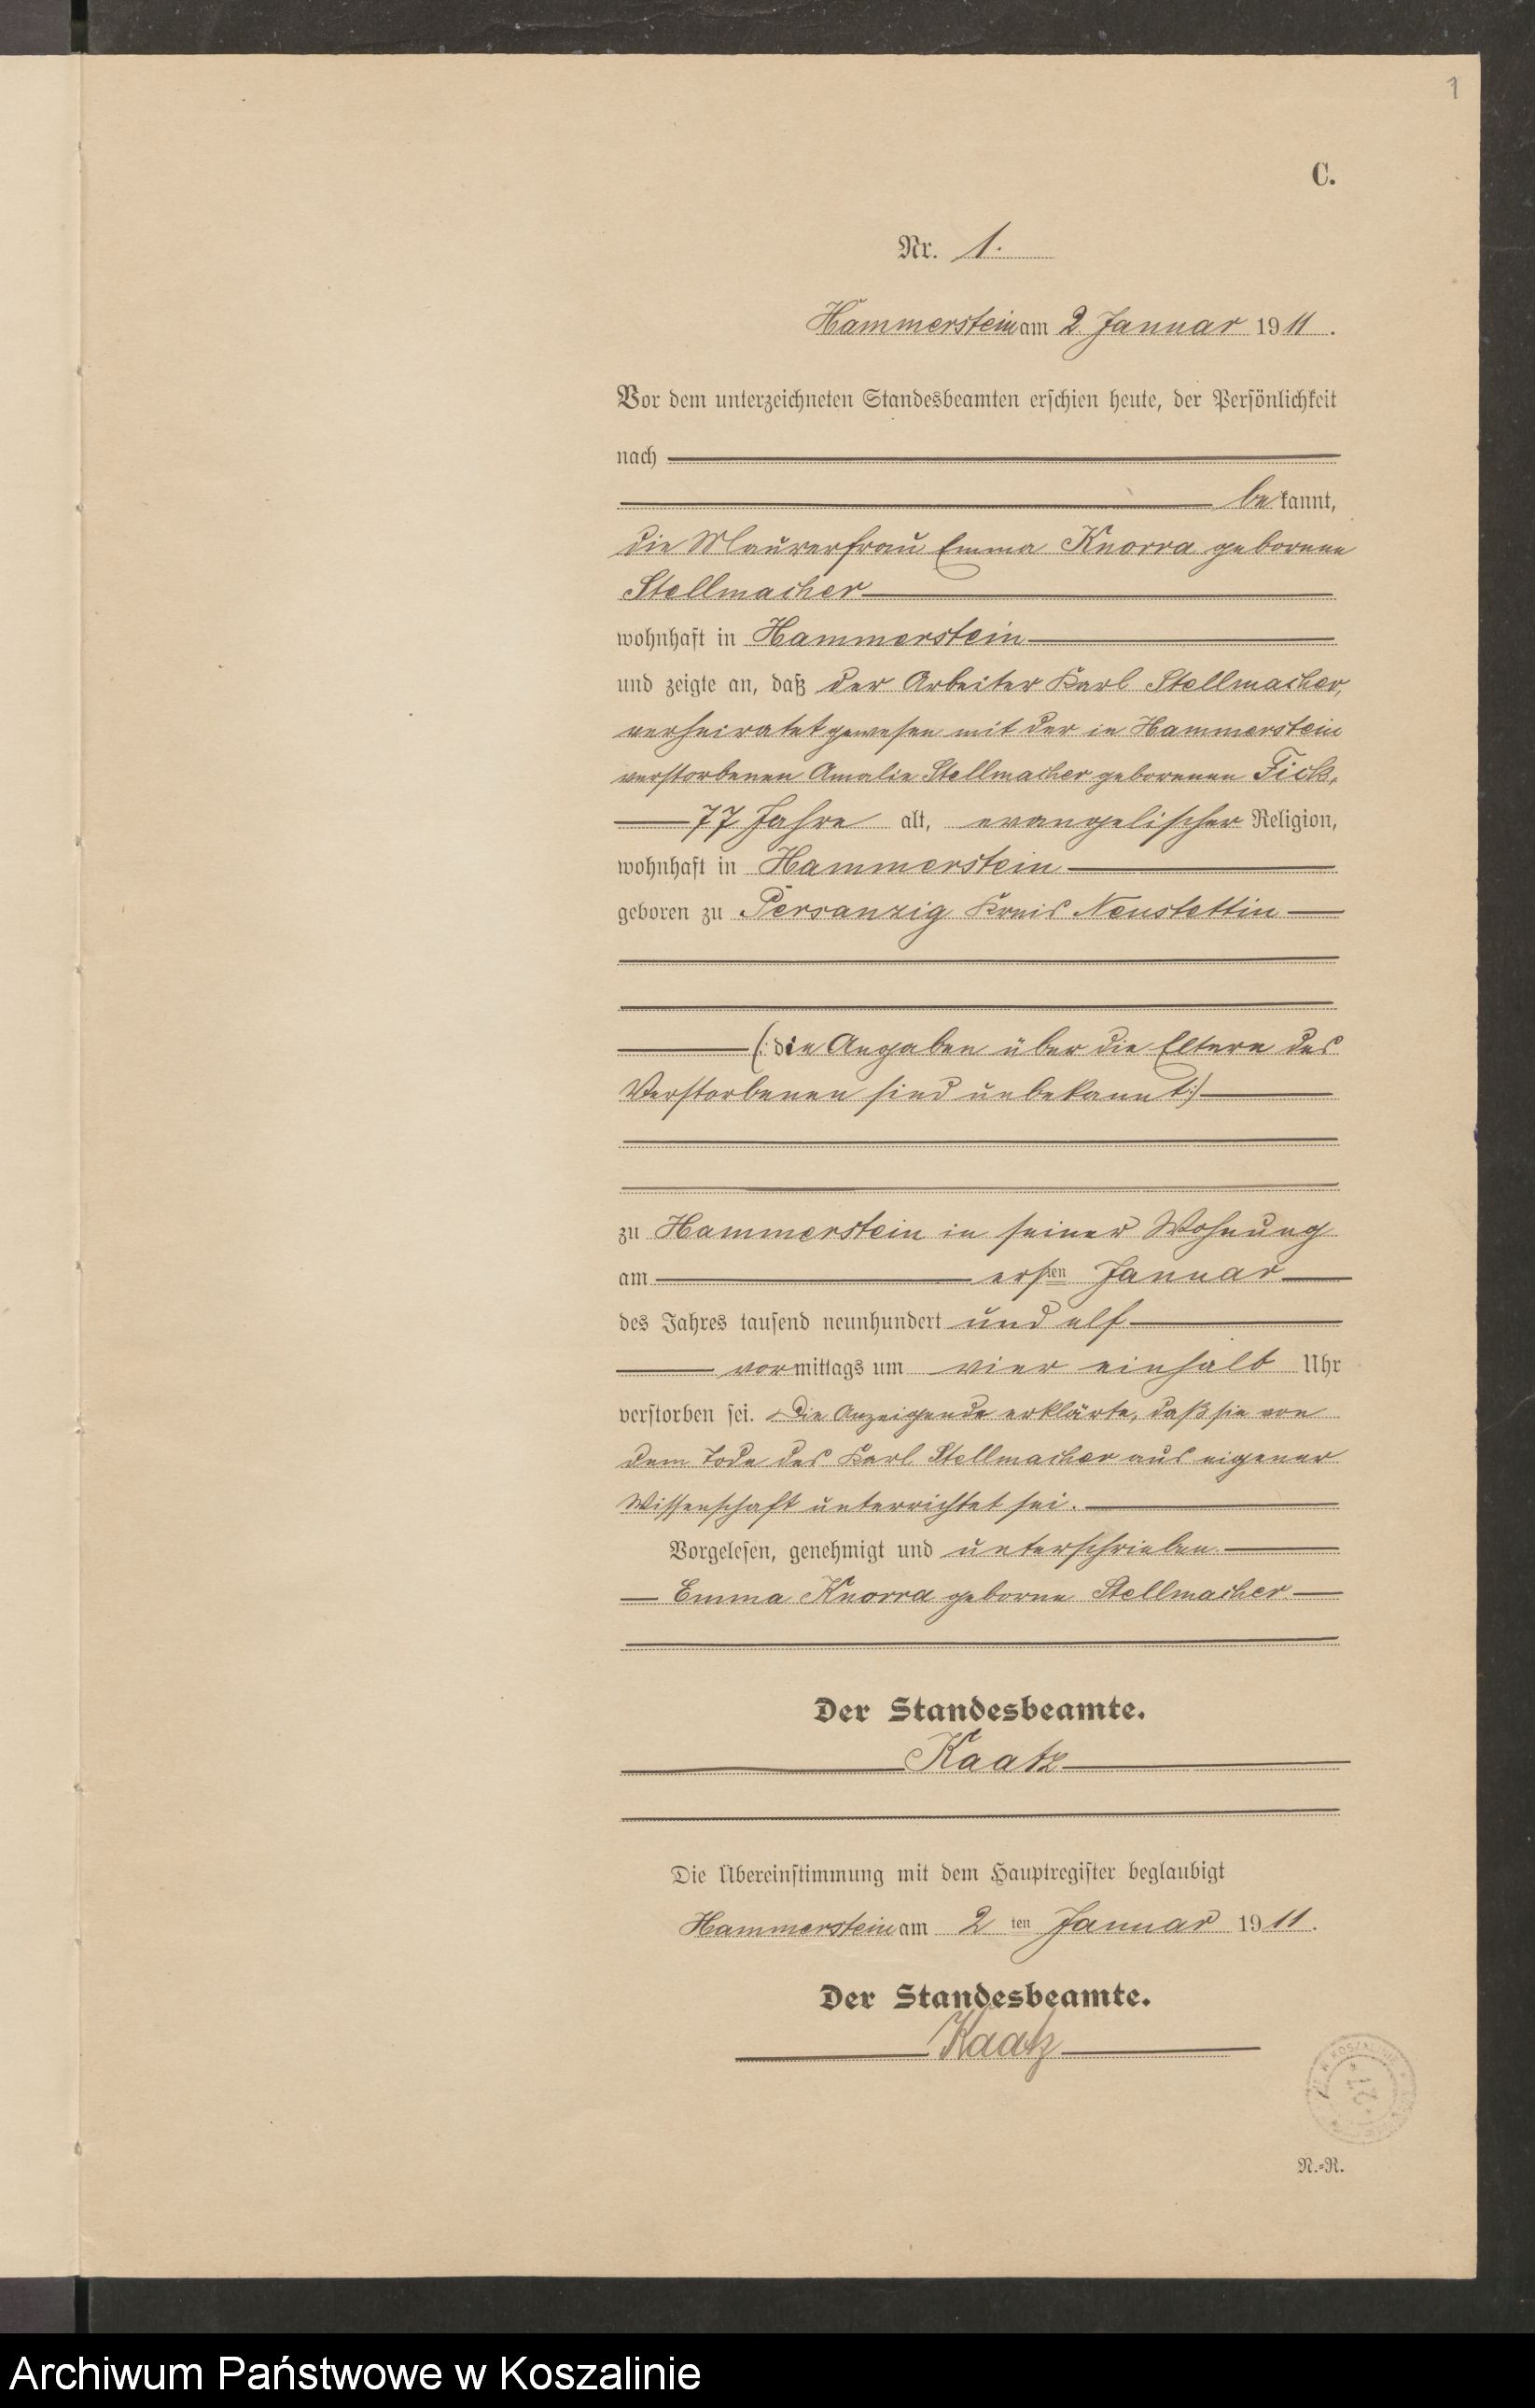 1
C.
Nr. 1.
Hammerstein am 2. Januar 1911.
Vor dem unterzeichneten Standesbeamten erschien heute, der Persönlichkeit
nach
bekannt,
die Maurerfrau Emma Knorra geborene
Stellmacher
wohnhaft in Hammerstein
und zeigte an, daß der Arbeiter Karl Stellmacher,
verheiratet gewesen mit der in Hammerstein
verstorbenen Amalie Stellmacher geborenen Fick,
77 Jahre alt, evangelischer Religion,
wohnhaft in Hammerstein
geboren zu Persanzig Kreis Neustettin
(: die Angaben über die Eltern des
Verstorbenen sind unbekannt :)
zu Hammerstein in seiner Wohnung
am ersten Januar
des Jahres tausend neunhundert und elf
vormittags um vier einhalb Uhr
verstorben sei. Die Anzeigende erklärte, daß sie von
dem Tode des Karl Stellmacher aus eigener
Wissenschaft unterrichtet sei.
Vorgelesen, genehmigt und unterschrieben.
Emma Knorra geborne Stellmacher
Der Standesbeamte.
Kaatz
Die Übereinstimmung mit dem Hauptregister beglaubigt
Hammerstein am 2ten Januar 1911.
Der Standesbeamte.
Kaatz
W KOSZALINIE
N.-R.
Archiwum Państwowe w Koszalinie